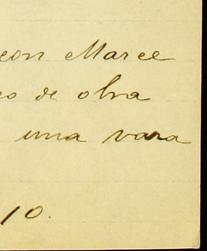 con Marce
o de obra
una vara
10.